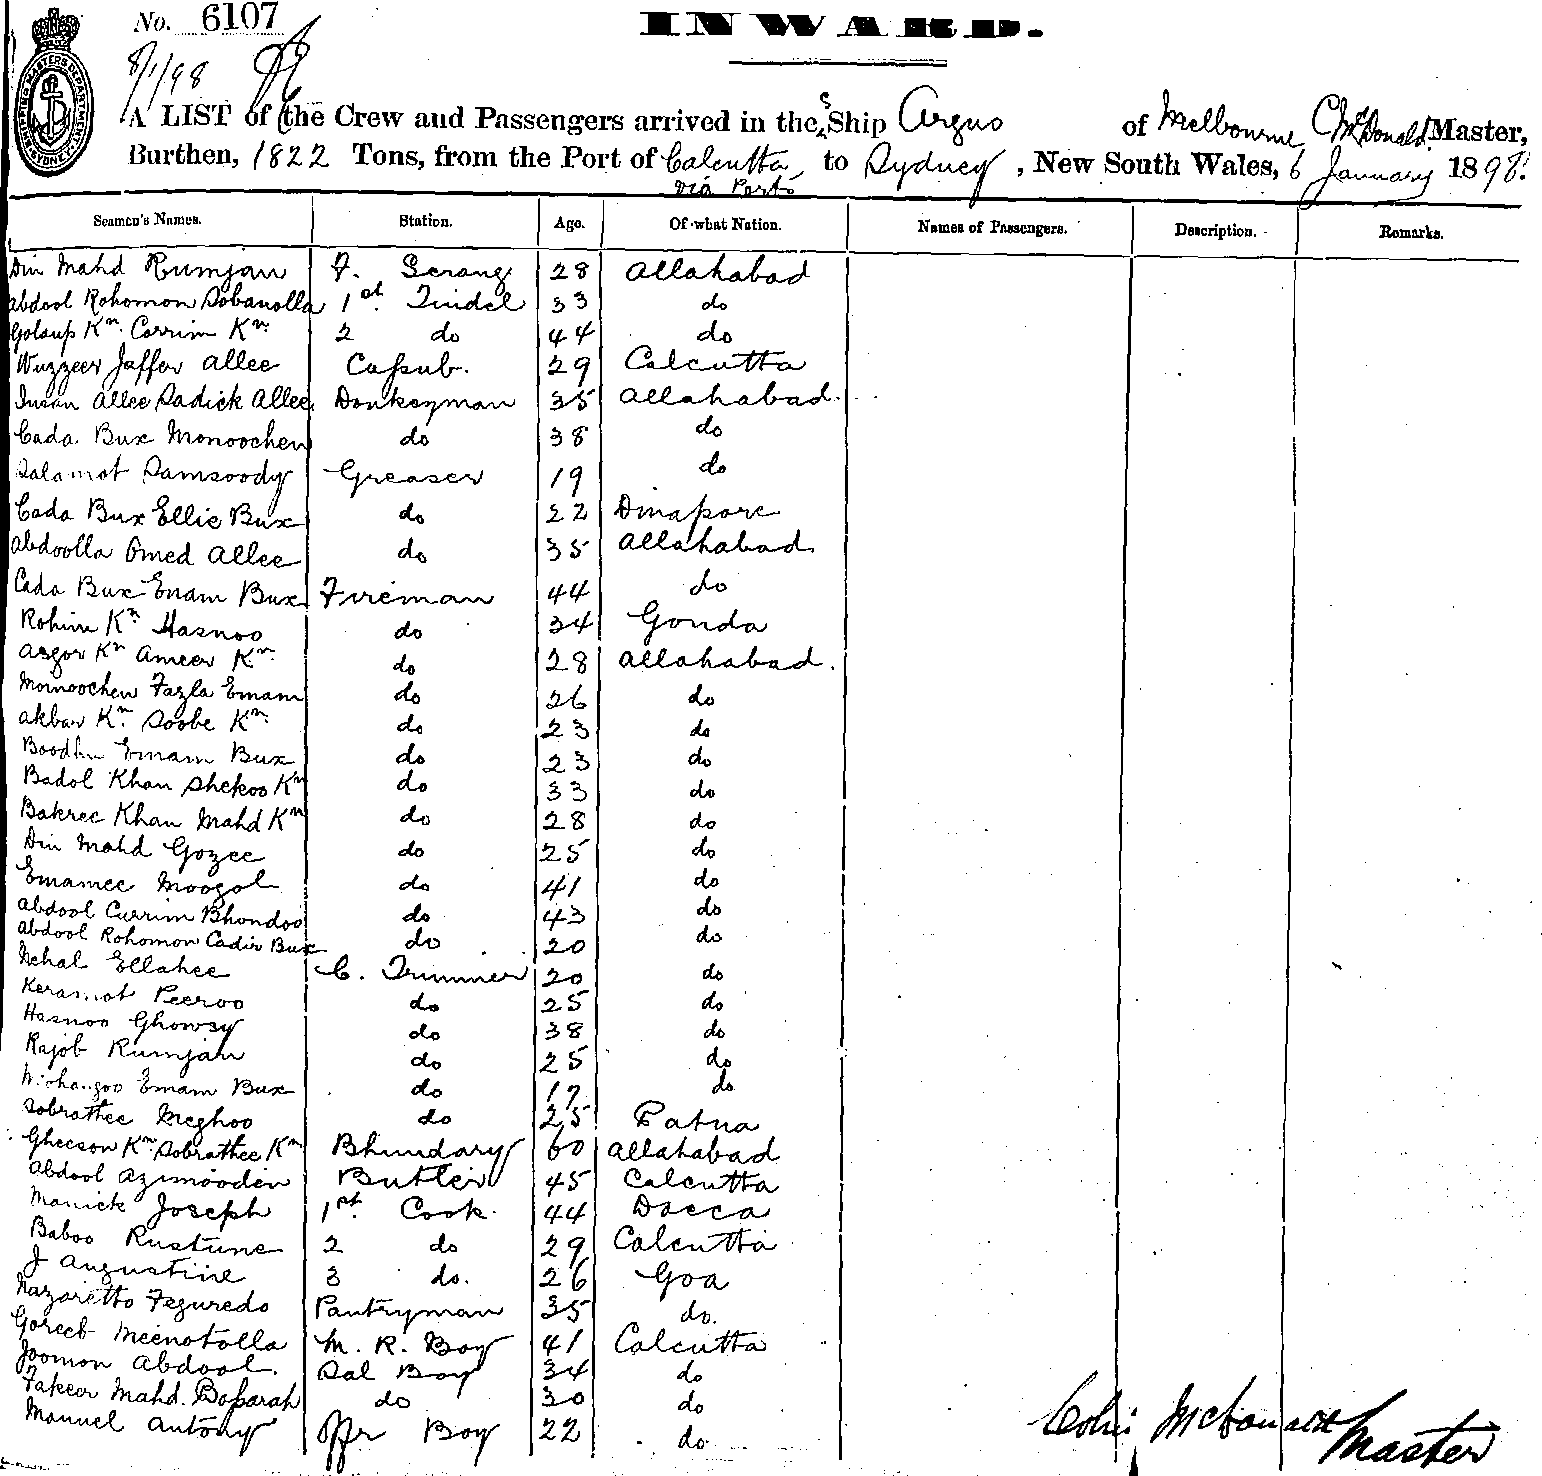 No. 6107
INWARD.
8/1/98
A LIST of the Crew and Passengers arrived in the S Ship Argus of Melbourne, C McDonald Master,
Burthen, 1822 Tons, from the Port of Calcutta, to Sydney, New South Wales, 6 January 1898.
via Ports
Seamen's Names. Station. Age. Of what Nation. Names of Passengers. Description. Remarks.
Din Mahd Rumjan F. Serang 28 Allahabad
Abdool Rohomon Sobanolla 1st Tindel 33 do
Golaup Kn. Corrim Kn. 2 do 44 do
Wuzzeer Jaffer Allee Cassub. 29 Calcutta
Insan Allee Sadick Allee Donkeyman 35 Allahabad.
Cada Bux Monoochen do 38 do
Salamot Samsoody Greaser 19 do
Cada Bux Ellie Bux do 22 Dinapore
Abdoolla Omed Allee do 35 Allahabad.
Cada Bux Enam Bux Fireman 44 do
Rohim Kn Hasnoo do 34 Gonda
Asgor Kn Ameer Kn. do 28 Allahabad.
Monoochen Fazla Emam do 26 do
Akbar Kn. Soobe Kn. do 23 do
Boodhu Emam Bux do 23 do
Badol Khan Shekoo Kn do 33 do
Bakree Khan Mahd Kn do 28 do
Din Mahd Gozee do 25 do
Emamee Moogol do 41 do
Abdool Currim Bhondoo do 43 do
Abdool Rohomon Cadir Bux do 20 do
Nehal Ellahee C. Trimmer 20 do
Keramot Peeroo do 25 do
Hasnoo Ghowsy do 38 do
Rajob Rumjan do 25 do
Emam Bux do 17 do
Sobrathee Meghoo do 25 Patna
Gheeson Kn. Sobrathee Kn Bhundary 60 Allahabad
Abdool Azimooden Butler 45 Calcutta
Manick Joseph 1st. Cook. 44 Dacca
Baboo Rustune 2 do 29 Calcutta
J Augustine 3 do. 26 Goa
Nazaretto Feguredo Pantryman 35 do.
Goreeb Meenotolla M. R. Boy 41 Calcutta
Joomon Abdool. Sal Boy 34 do
Fakeer Mahd. Bossarah do 30 do
Manuel Antony Offr Boy 22 do
Colin McDonald
Master